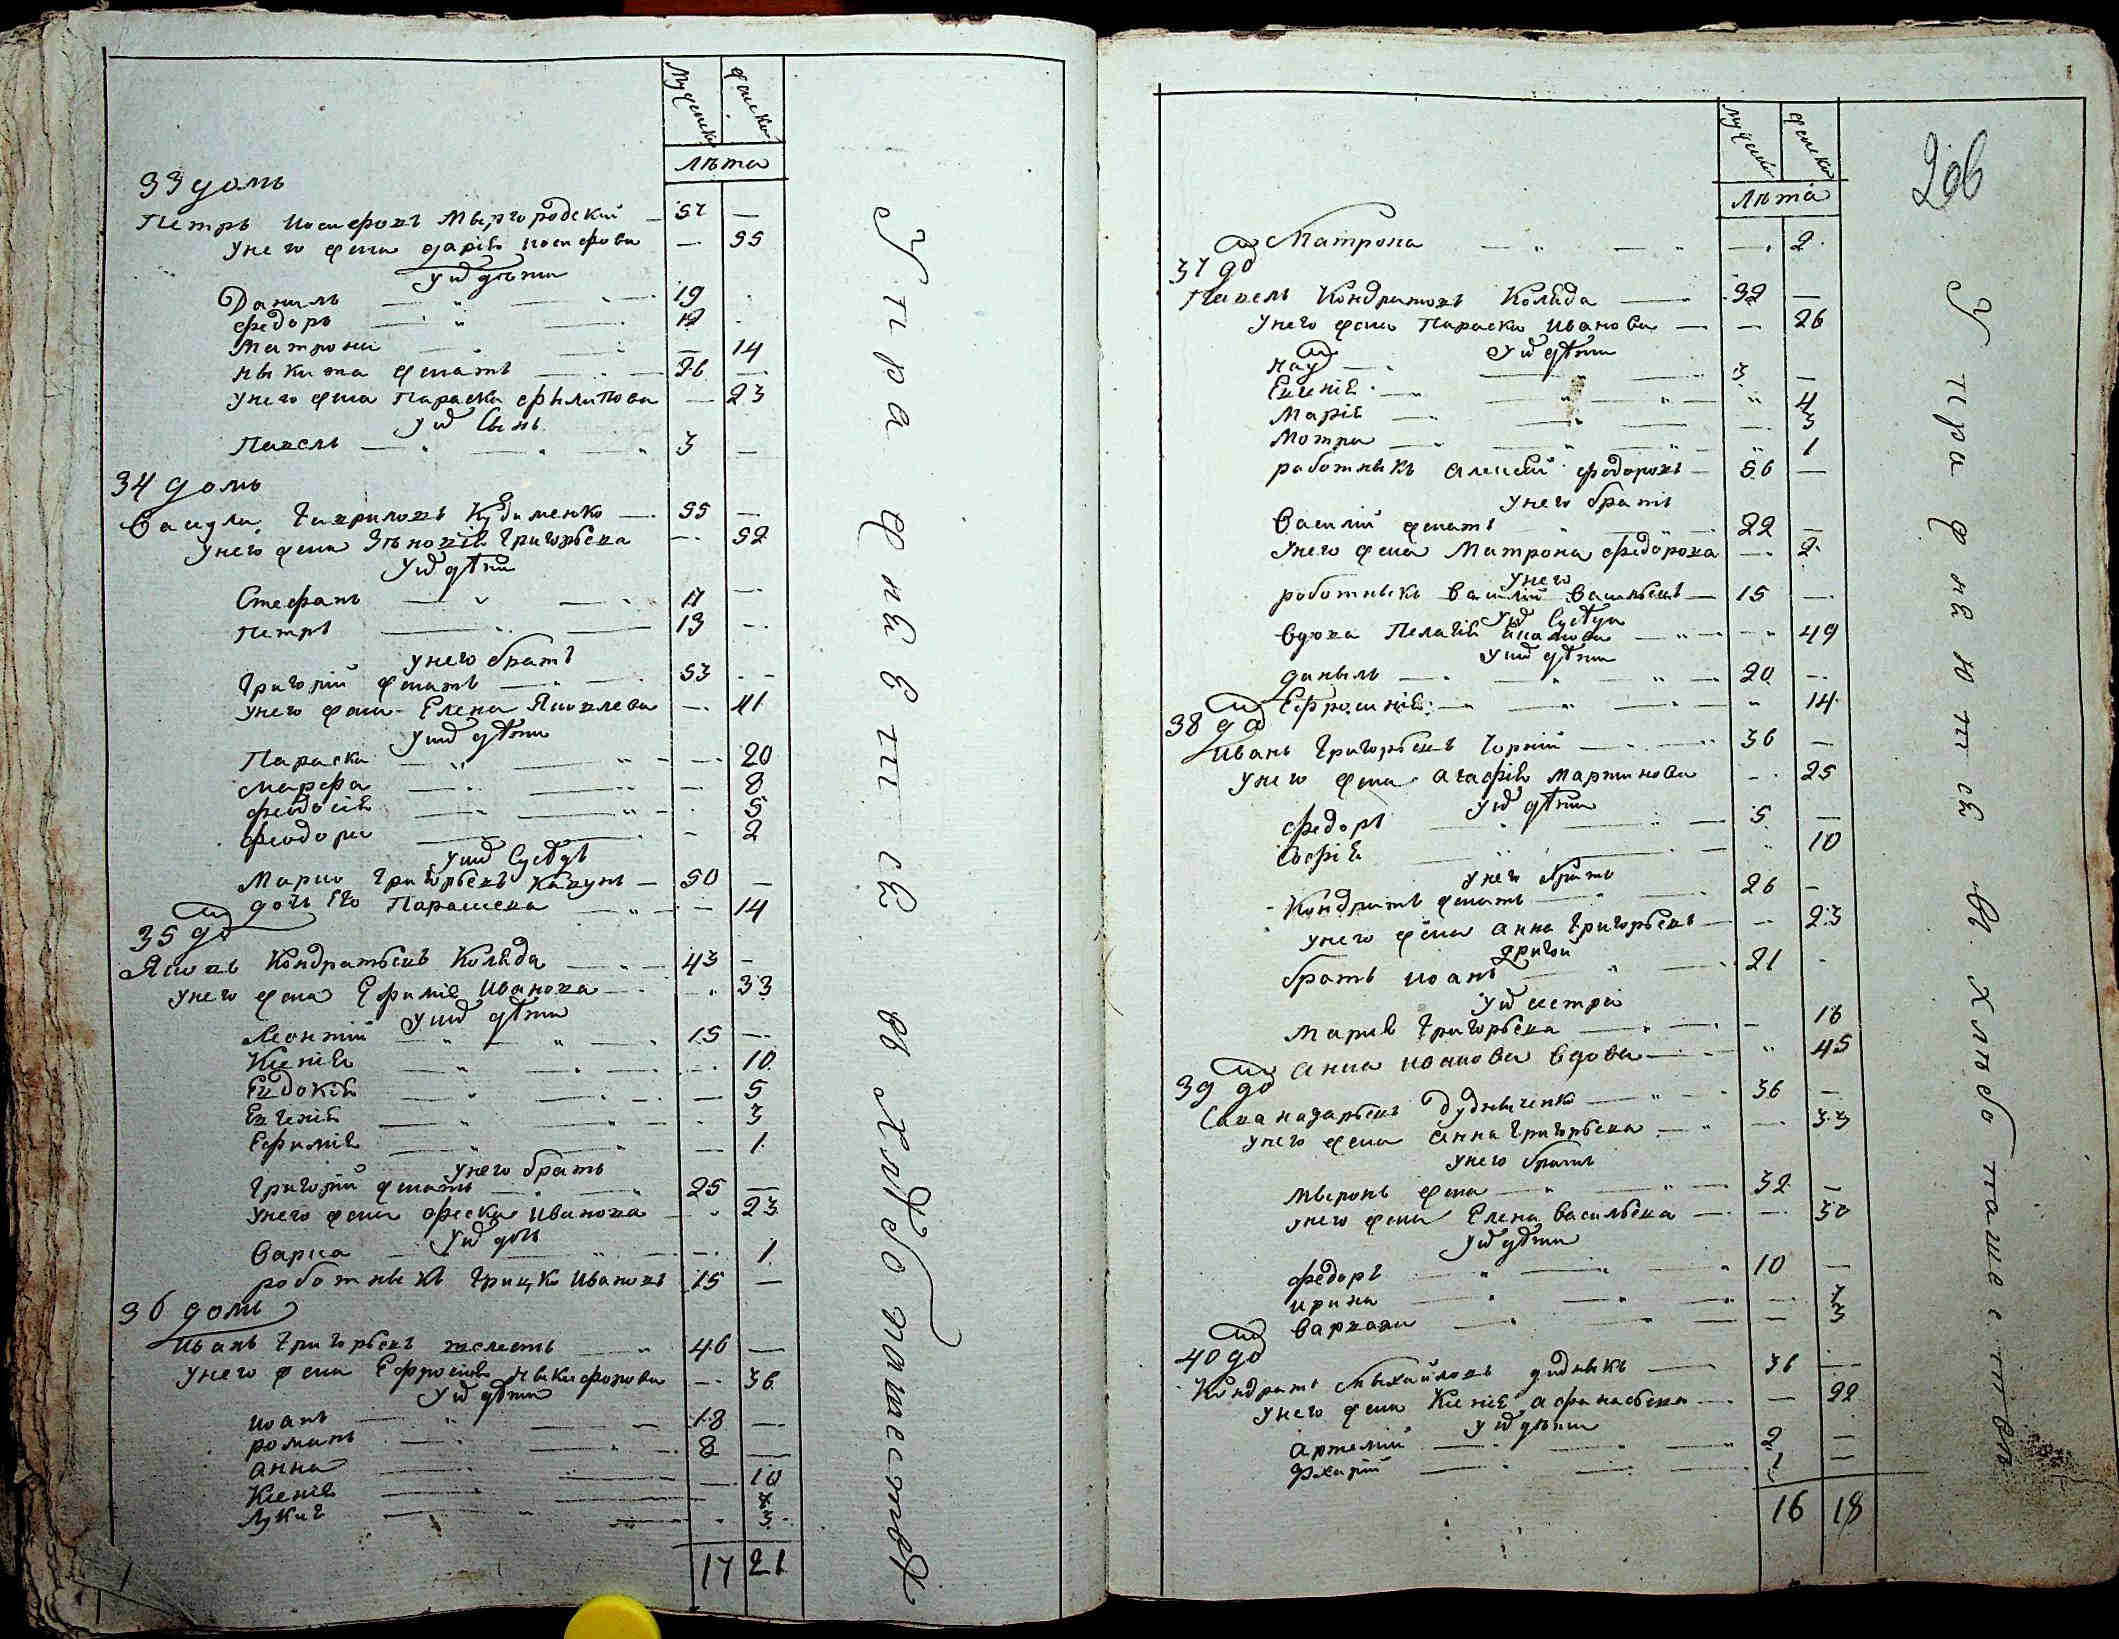 мужеска
женска
лѣта
33 домъ
Петръ Иосифовъ Мыргородский 57 —
у него жена дарія иосифова — 55
у их дѣти
Данилъ 19
федоръ 12
Матрона — 14
Никита женатъ 26 —
у него жена Параска филипова — 23
у их сынъ
Павелъ 3 —
34 домъ
Гавриловъ Кудименко 55 —
у него жена Зѣновія Григорьева — 52
у их дѣти
Стефанъ 17 —
петръ 13 —
у него братъ
Григорій женатъ 53 —
у него жена Елена Яковлева — 41
у их дѣти
Параска — 20
марфа — 8
феодосія — 5
феодора — 2
у их сусѣдъ
Марко Григорьевъ 50 —
дочь его Парасkева — 14
35 до
Яковъ Кондратьевъ Коляда 43 —
у него жена Ефимія Иванова — 33
у их дѣти
Леонтій 15 —
Ксенія — 10
Евдокія — 5
Евгенія — 3
Ефимія — 1
у него братъ
Григорій женатъ 25 —
у него жена феска Иванова — 23
у их дочь
Варка — 1
работныкъ Грицко Ивановъ 15 —
36 домъ
Иванъ Григорьевъ 46 —
у него жена Ефросинія Никифорова — 36
у их дѣти
иоанъ 18 —
романъ 8 —
анна — 10
Ксенія — 7
Лукия — 3
17 21
Упражняется въ хлѣбопашествѣ
206
мужеска
женска
лѣта
Матрона — 2
37 до
Павелъ Кондратовъ Коляда 32 —
у него жена Параска иванова — 26
у их дѣти
3 —
Евгенія — 4
Марія — 3
Мотра — 1
работныкъ алексѣй федоровъ 56 —
у него братъ
Василій женатъ 22 —
у него жена Матрона федорова — 2
у него
работныкъ василій Васильевъ 15 —
у их сусѣда
вдова Пелагія — 49
у их дѣти
даныло 20 —
Ефросинія — 14
38 до
иванъ Григорьевъ Чорній 36 —
у него жена агафія мартинова — 25
у их дѣти
федоръ 5 —
Софія — 10
у него братъ
Кондратъ женатъ 26 —
у него жена анна Григорьевъ — 23
другой
братъ иоанъ 21 -
у их сестра
Марія Григорьева — 16
анна иванова вдова — 45
39 до
Сава назарьевъ Дудныченко 36 —
у него жена анна Григорьева — 33
у него братъ
мыронъ жена 32 —
у него жена Елена Васильева — 30
у их дѣти
федоръ 10 —
ирина — 7
варвара — 3
40 до
Кондратъ Михайловъ дидныкъ 36 —
у него жена Ксенія афанасьева — 22
у их дѣти
артемій 2 —
1 —
16 18
Упражняются въ хлѣбопашествѣ